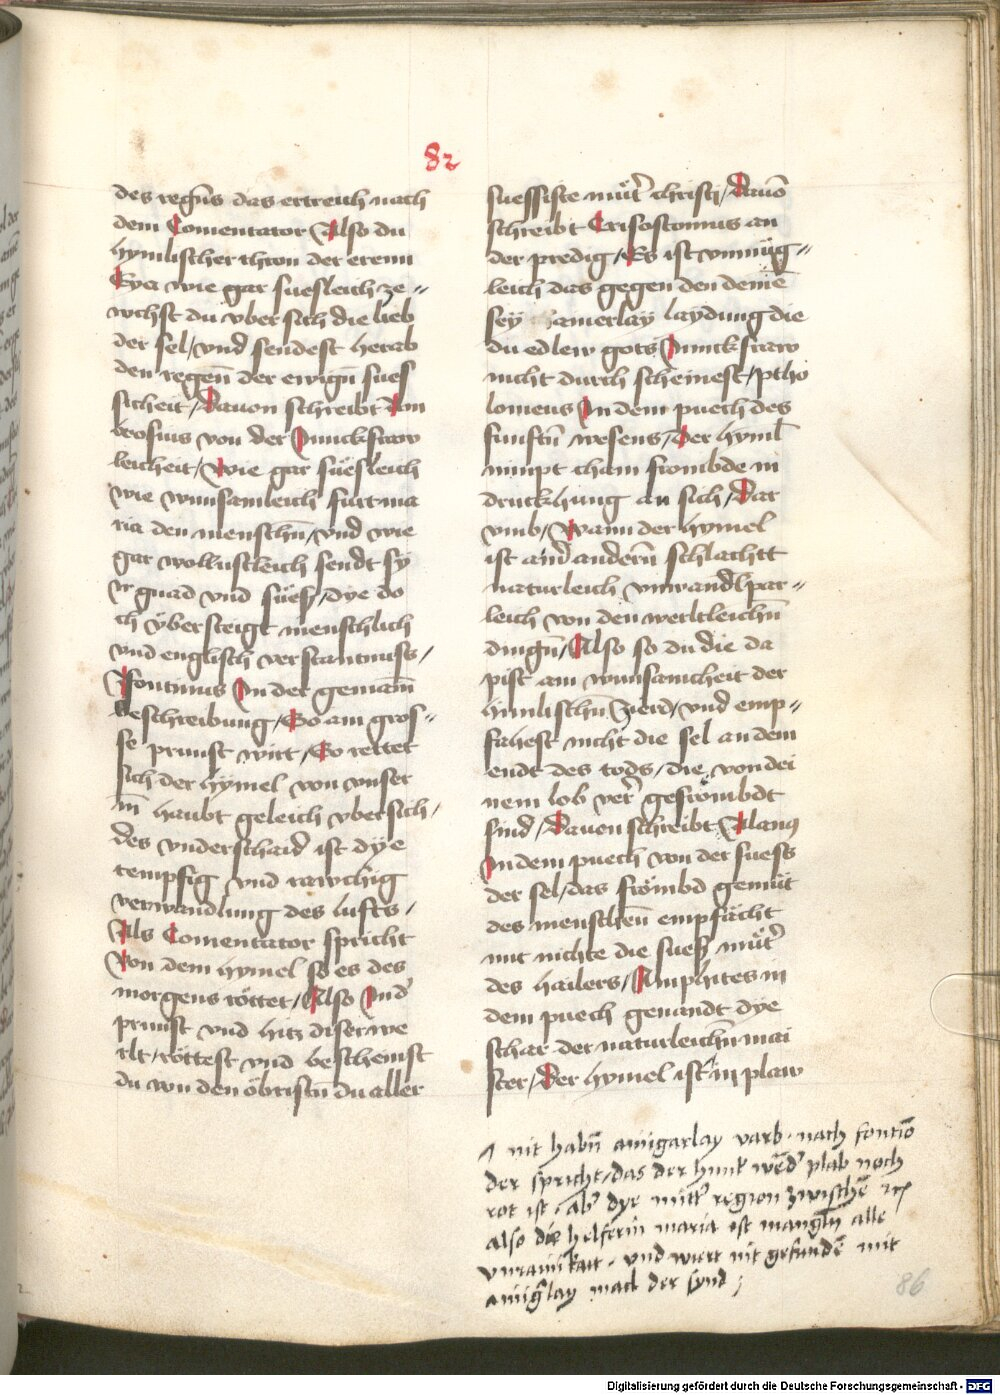 82
des regn̄s das ertreich nach
dem Comentator Also du
hymlischer thron der erenn
Eya wie gar suesleich ze„
wchst du vber sich die lieb
der sel/vnd sendest herab
den regen̄ der ewign̄ sues
sicheit/Dauon schreibt Am
brosius von der Junckfraw
leicheit/Wie gar süesleich
wie wunsamleich furt ma
ria den menschn̄/vnd wie
gar wollustleich sendt sy
ir gnad vnd süess/dye do
ch übersteigt menschlich
vnd englisch verstantnuss/
Afontinus In der gemain̄
beschreibung/So ain gros„
se prunst wirt/So rettet
sich der hymel von vnser
m̄ haubt geleich vber sich/
des vnderschaid ist dye
tempfig vnd rawchig
verwandlung des lufts/
Als Comentator spricht
Von dem hymel so es des
morgens röttet/Also Jnd'
prunst vnd hitz diser we
rlt/röttest vnd bescheinst
du von den öbristn̄ du aller
suessiste mut' christi/Dauō
schreibt Crisostomus an
der predig/Es ist vnmüg„
leich das gegen den denē
sey ainerlay laydung die
du edlew gots Junckfraw
nicht durch scheinest/ptho
lomeus In dem puech des
funftn̄ wesens/Der hyml̄
nimpt chain frombde in
druckhung an sich/Dar
vmb/Wann der hymel
ist ain' andern̄ schlachtt
naturleich vnwandl̄par„
leich von den werltleichn̄
dingn̄/Also so du die da
pist ain wunsamcheit der
himlischn̄ zierd/vnd emp„
fahest nicht die sel an dem
endt des tods/die von dei
nem lob ver' gefrömbdt
sind/Dauon schreibt Alanus
In dem puech von der suess
der sel/das frömbd gemüt
des menschen̄ empfächt
mit nichte die suess müt'
des hailers/Amphites in
dem puech genandt dye
schar der naturleichn̄ mai
ster/Der hymel ist in plaw
nit habn̄ ainigarlay varb nach fontinō
der spricht/das der himl wed' plab noch
rot ist ab' dye mitt' region zwischē
also die helferin maria ist mangln̄ alle
vnrainikait vnd wiert nit gefundē mit
ainig'lay mackl der synd
86
Digitalisierung gefördert durch die Deutsche Forschungsgemeinschaft - DFG